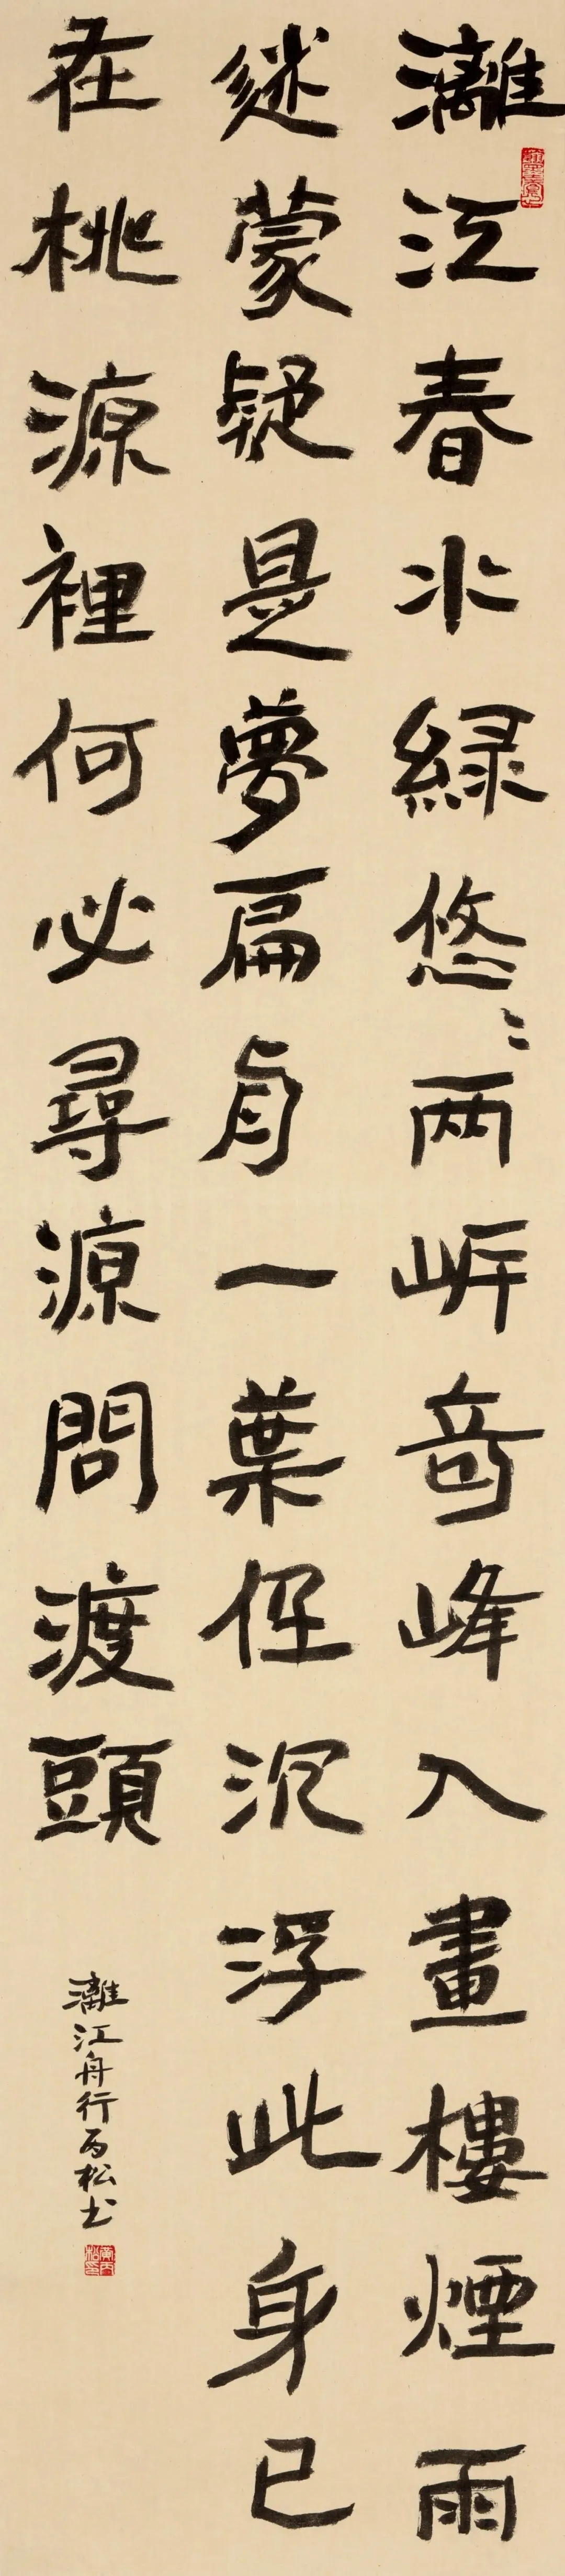 灕江春水綠悠〻两岸奇峰入畫樓煙雨
迷蒙疑是夢扁舟一葉任沉浮此身已
在桃源裡何必尋源問渡頭
灕江舟行丙松书